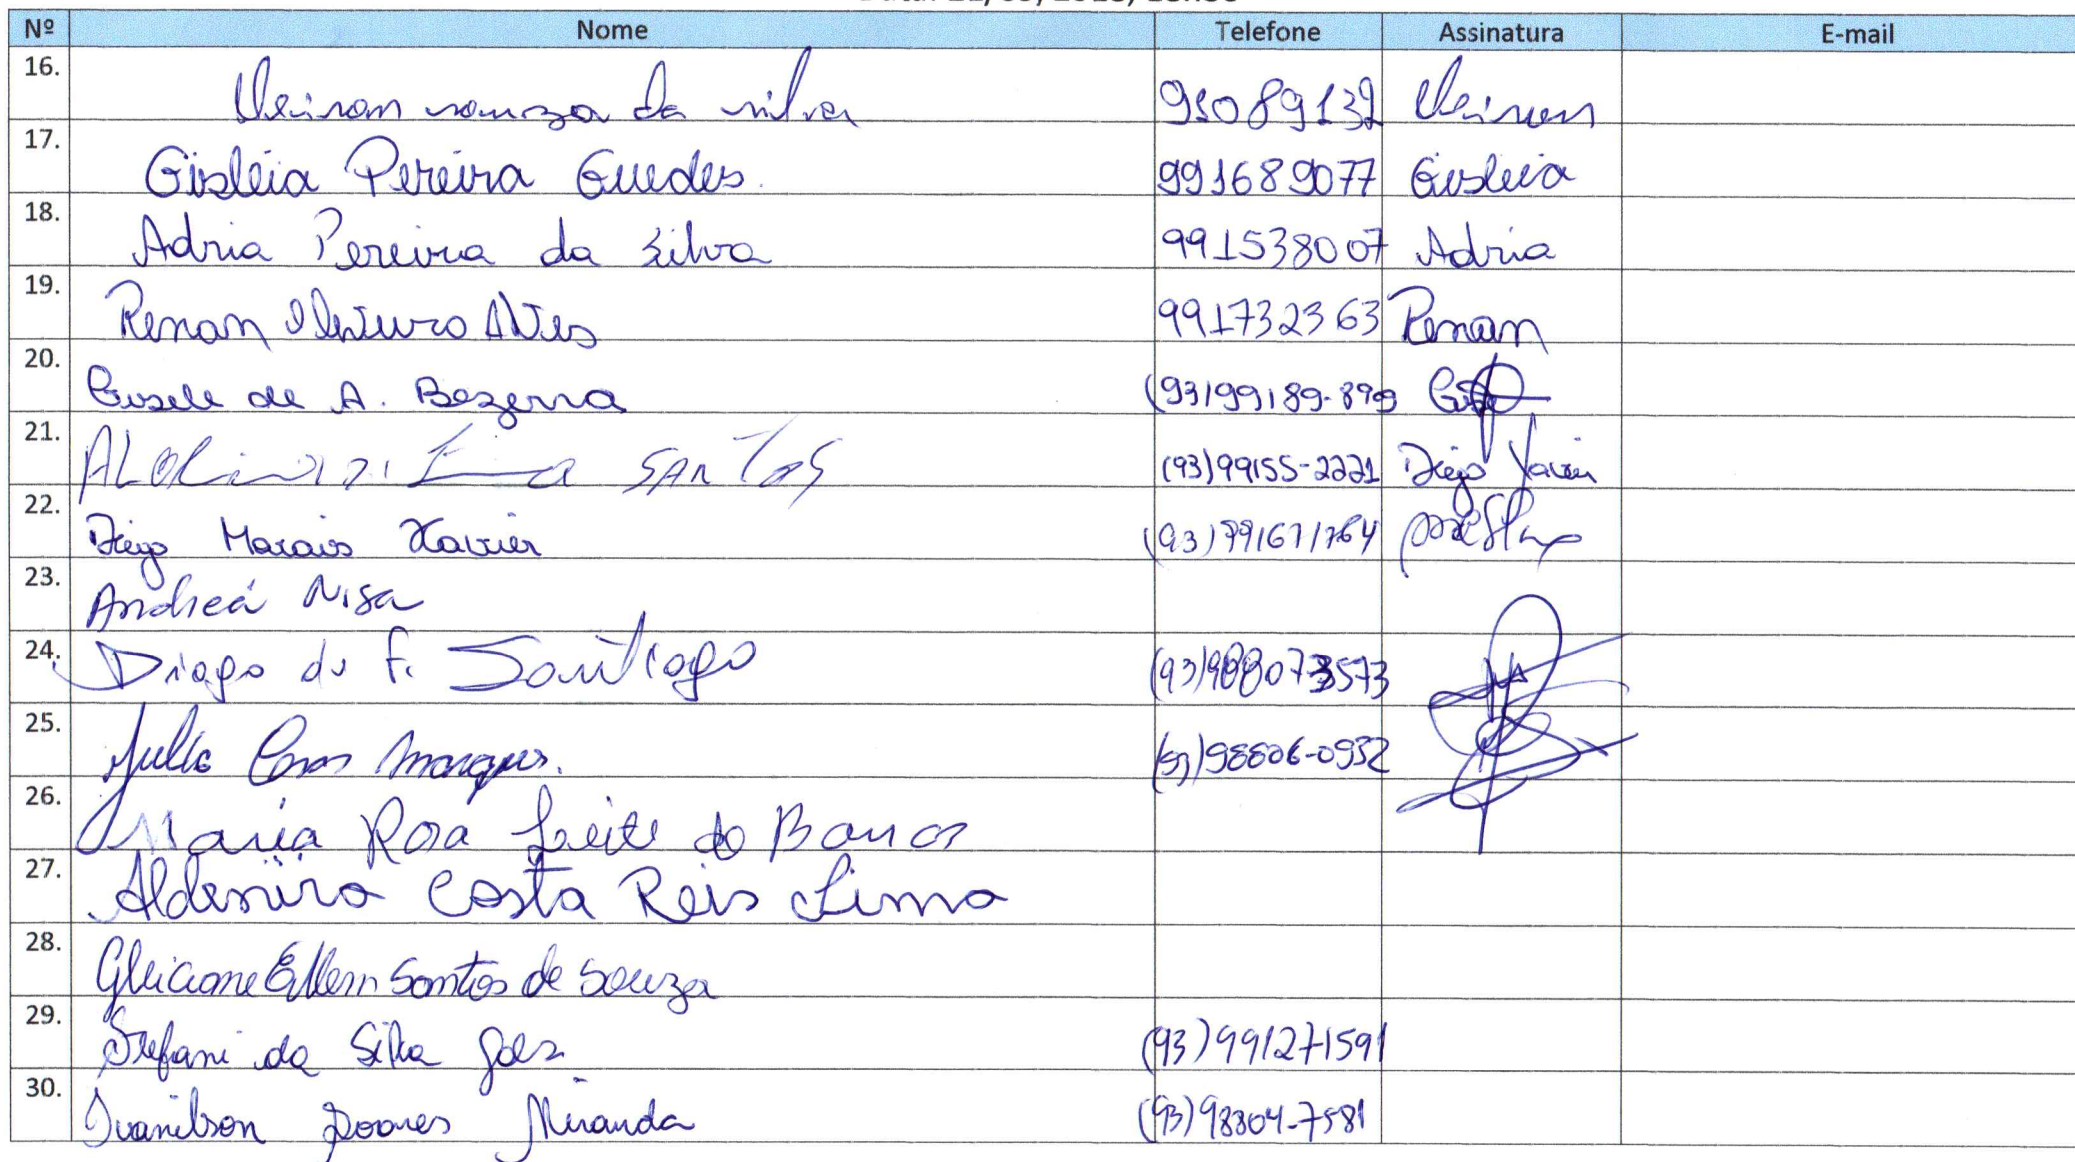 Nº Nome Telefone Assinatura E-mail
16. souza da silva 91089132
17. Gisléia Pereira Guedes. 991689077 Gisleia
18. Adria Pereira da Silva 991538007 Adria
19. Renan Alves 991732363 Renan
20. Gisele de A. Bezerra (93)99189-899
21. Lima SANTOS (93)99155-2221 Diego Xavier
22. Diego Morais Xavier (93)991671764
23. Andreá Nisa
24. Diago de F. Santiago (93)988073573
25. Marques. (93)98806-0952
26. Maria Rosa Leite de Barros
27. Aldenira Costa Reis Lima
28. Gleiciane Ellem Santos de Souza
29. Stefani da Silva Goes (93)991271591
30. Ivanilson Soares Miranda (93)98804-7581